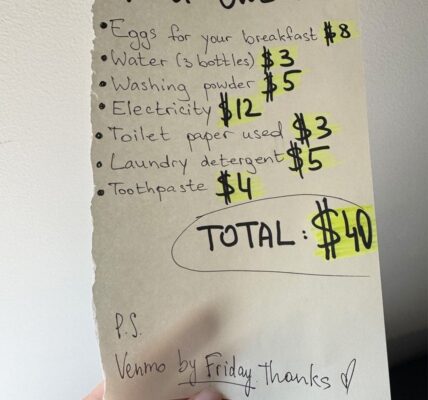 • Eggs for your breakfast $8
• Water (3 bottles) $3
• Washing powder $5
• Electricity $12
• Toilet paper used $3
• Laundry detergent $5
• Toothpaste $4
TOTAL: $40
P.S.
Venmo by Friday. Thanks ♡